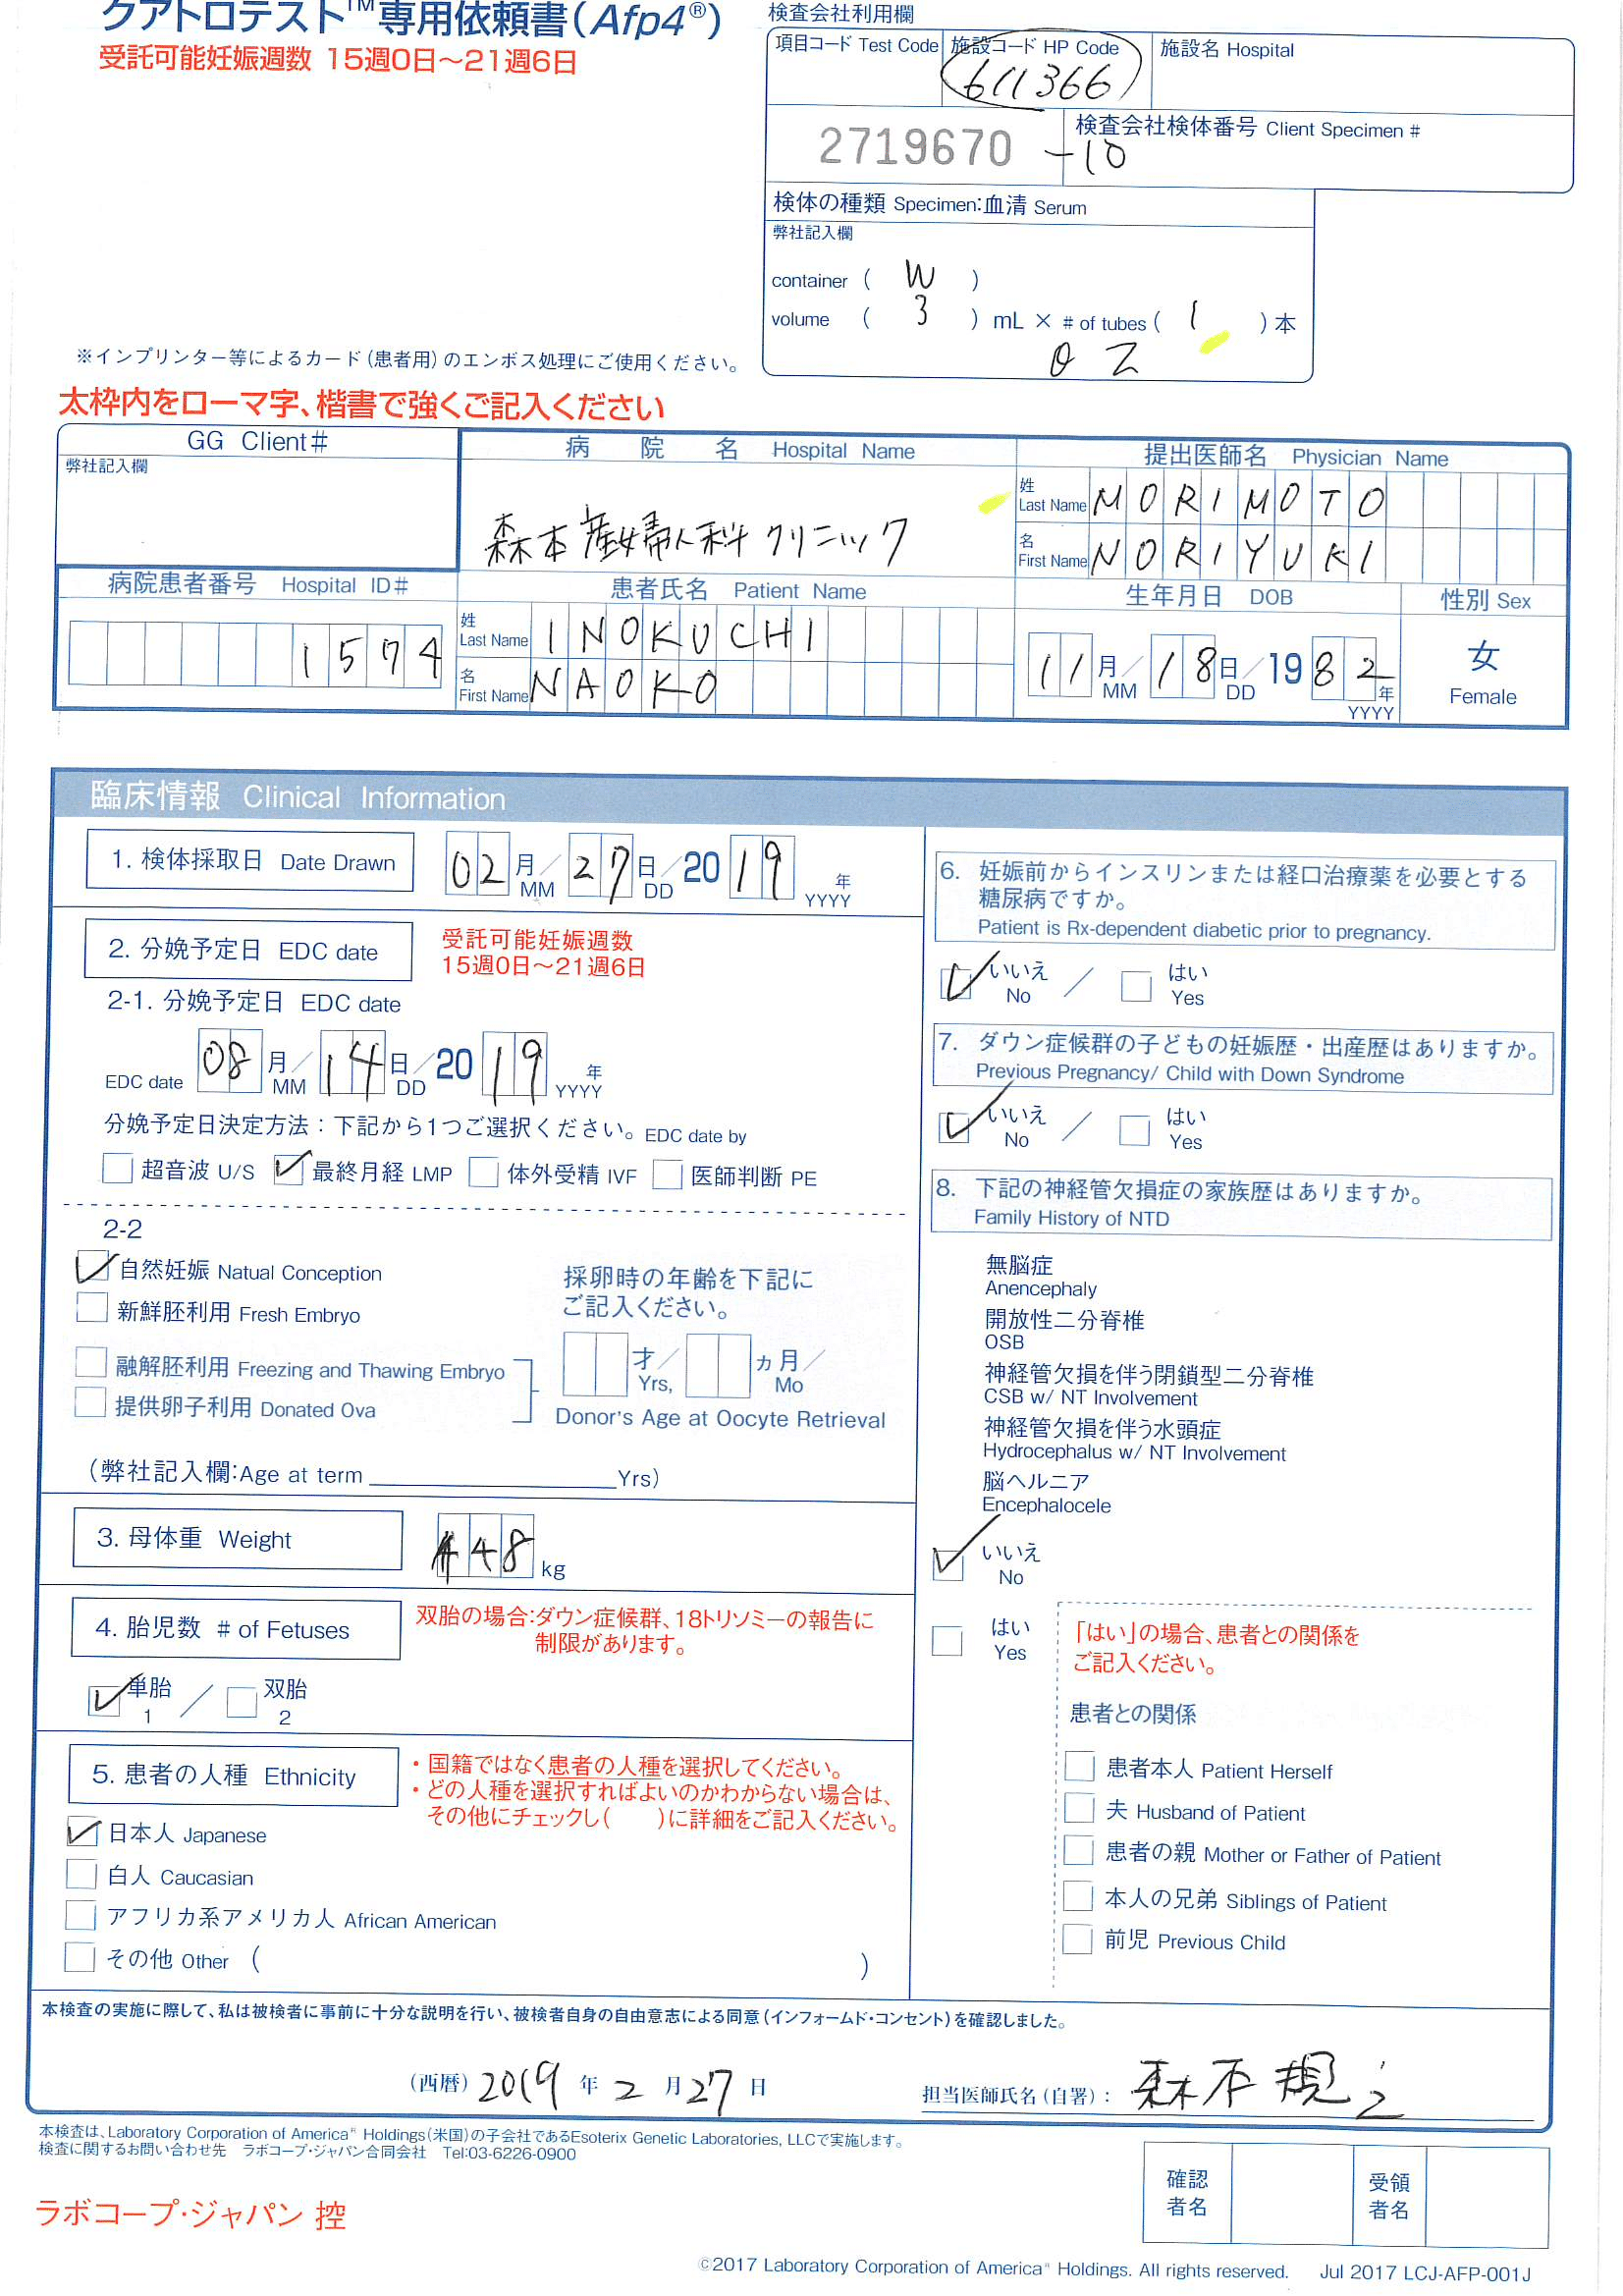 クアトロテスト™専用依頼書(Afp4®)
受託可能妊娠週数 15週0日～21週6日
検査会社利用欄
項目コード Test Code
施設コード HP Code
611366
施設名 Hospital
2719670 -10
検査会社検体番号 Client Specimen #
検体の種類 Specimen:血清 Serum
弊社記入欄
container ( W )
volume ( 3 ) mL × # of tubes ( 1 )本
※インプリンター等によるカード(患者用)のエンボス処理にご使用ください。
太枠内をローマ字、楷書で強くご記入ください
GG Client#
弊社記入欄
病院名 Hospital Name
森本産婦人科クリニック
提出医師名 Physician Name
姓 Last Name MORIMOTO
名 First Name NORIYUKI
病院患者番号 Hospital ID#
1574
患者氏名 Patient Name
姓 Last Name INOKUCHI
名 First Name NAOKO
生年月日 DOB
11月/18日/1982年
MM DD YYYY
性別 Sex
女
Female
臨床情報 Clinical Information
1. 検体採取日 Date Drawn
02月/27日/2019年
MM DD YYYY
2. 分娩予定日 EDC date
受託可能妊娠週数
15週0日～21週6日
2-1. 分娩予定日 EDC date
EDC date 08月/14日/2019年
MM DD YYYY
分娩予定日決定方法：下記から1つご選択ください。EDC date by
超音波 U/S 最終月経 LMP 体外受精 IVF 医師判断 PE
2-2
自然妊娠 Natual Conception
新鮮胚利用 Fresh Embryo
融解胚利用 Freezing and Thawing Embryo
提供卵子利用 Donated Ova
採卵時の年齢を下記に
ご記入ください。
才/ カ月/
Yrs, Mo
Donor's Age at Oocyte Retrieval
(弊社記入欄:Age at term Yrs)
3. 母体重 Weight
48 kg
4. 胎児数 # of Fetuses
双胎の場合:ダウン症候群、18トリソミーの報告に
制限があります。
単胎 / 双胎
1 2
5. 患者の人種 Ethnicity
・国籍ではなく患者の人種を選択してください。
・どの人種を選択すればよいのかわからない場合は、
その他にチェックし( )に詳細をご記入ください。
日本人 Japanese
白人 Caucasian
アフリカ系アメリカ人 African American
その他 Other ( )
6. 妊娠前からインスリンまたは経口治療薬を必要とする
糖尿病ですか。
Patient is Rx-dependent diabetic prior to pregnancy.
いいえ / はい
No Yes
7. ダウン症候群の子どもの妊娠歴・出産歴はありますか。
Previous Pregnancy/ Child with Down Syndrome
いいえ / はい
No Yes
8. 下記の神経管欠損症の家族歴はありますか。
Family History of NTD
無脳症
Anencephaly
開放性二分脊椎
OSB
神経管欠損を伴う閉鎖型二分脊椎
CSB w/ NT Involvement
神経管欠損を伴う水頭症
Hydrocephalus w/ NT Involvement
脳ヘルニア
Encephalocele
いいえ
No
はい
Yes
「はい」の場合、患者との関係を
ご記入ください。
患者との関係
患者本人 Patient Herself
夫 Husband of Patient
患者の親 Mother or Father of Patient
本人の兄弟 Siblings of Patient
前児 Previous Child
本検査の実施に際して、私は被検者に事前に十分な説明を行い、被検者自身の自由意志による同意(インフォームド・コンセント)を確認しました。
(西暦) 2019 年 2 月 27 日
担当医師氏名(自署): 森本規之
本検査は、Laboratory Corporation of America® Holdings(米国)の子会社であるEsoterix Genetic Laboratories, LLCで実施します。
検査に関するお問い合わせ先 ラボコープ・ジャパン合同会社 Tel:03-6226-0900
ラボコープ・ジャパン 控
確認者名
受領者名
©2017 Laboratory Corporation of America® Holdings. All rights reserved. Jul 2017 LCJ-AFP-001J